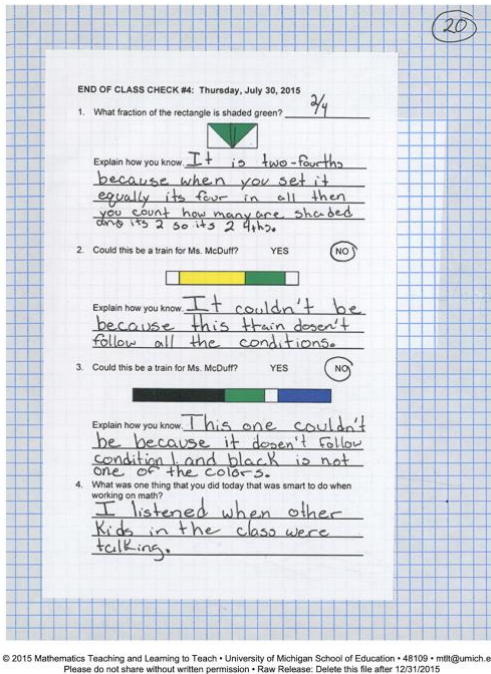 20
END OF CLASS CHECK #4: Thursday, July 30, 2015
1. What fraction of the rectangle is shaded green? 2/4
Explain how you know. It is two-fourths
because when you set it
equally its four in all then
you count how many are shaded
and its 2 so its 2 4ths.
2. Could this be a train for Ms. McDuff? YES NO
Explain how you know. It couldn't be
because this train dosen't
follow all the conditions.
3. Could this be a train for Ms. McDuff? YES NO
Explain how you know. This one couldn't
be because it dosen't follow
condition 1 and black is not
one of the colors.
4. What was one thing that you did today that was smart to do when
working on math?
I listened when other
Kids in the class were
talking.
© 2015 Mathematics Teaching and Learning to Teach • University of Michigan School of Education • 48109 • mtlt@umich.e
Please do not share without written permission • Raw Release: Delete this file after 12/31/2015